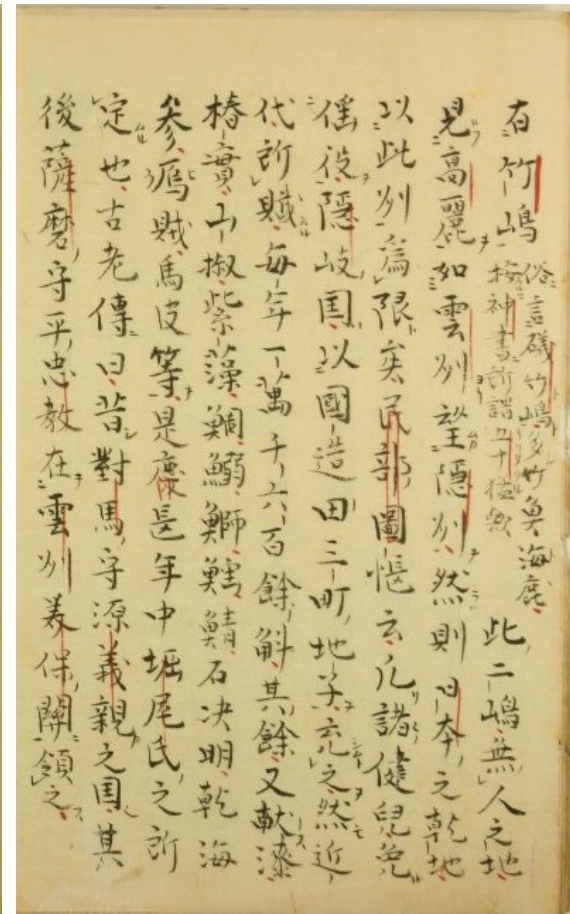 有竹嶋俗言磯竹嶋多竹魚海鹿
按神書所謂五十猛歟
此二嶋無人之地
見高麗如雲州望隠州然則日本之乾地
以此州為限矣民部圖帳云凡諸健兒免
徭役隠岐国以國造田三町地子充之然近
代所賦毎年一萬千六百餘斛其餘又献漆
椿實山椒紫藻鯛鰯鰤鱈鯖石决明乾海
参鴈賊馬皮等是慶長年中堀尾氏之所
定也古老傳曰昔對馬守源義親之国其
後薩磨守平忠教在雲州美保關領之